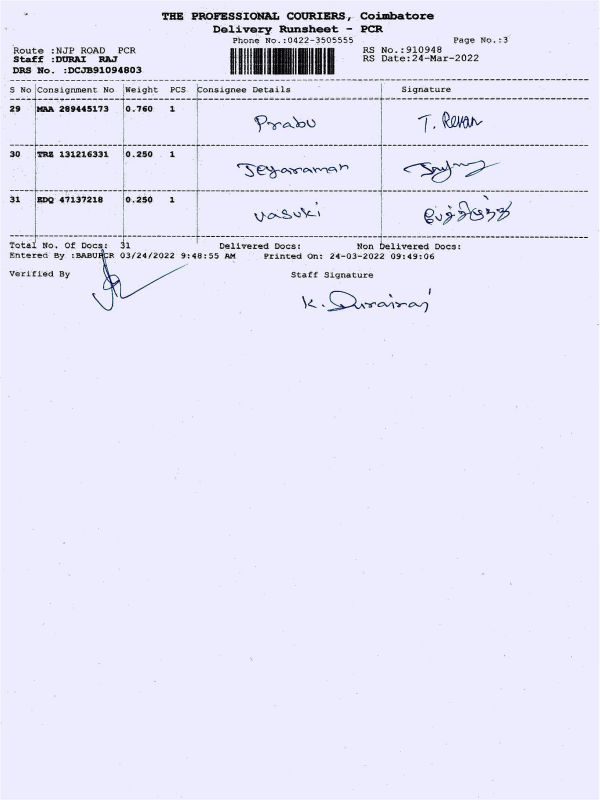 THE PROFESSIONAL COURIERS, Coimbatore
Delivery Runsheet - PCR
Phone No.:0422-3505555 Page No.:3
Route :NJP ROAD PCR RS No.:910948
Staff :DURAI RAJ RS Date:24-Mar-2022
DRS No. :DCJB91094803
S No Consignment No Weight PCS Consignee Details Signature
29 MAA 289445173 0.760 1
Prabu T. Revan
30 TRZ 131216331 0.250 1
Jeyaraman
31 EDQ 47137218 0.250 1
Vasuki
Total No. Of Docs: 31 Delivered Docs: Non Delivered Docs:
Entered By :BABUPCR 03/24/2022 9:48:55 AM Printed On: 24-03-2022 09:49:06
Verified By Staff Signature
K. Durairaj